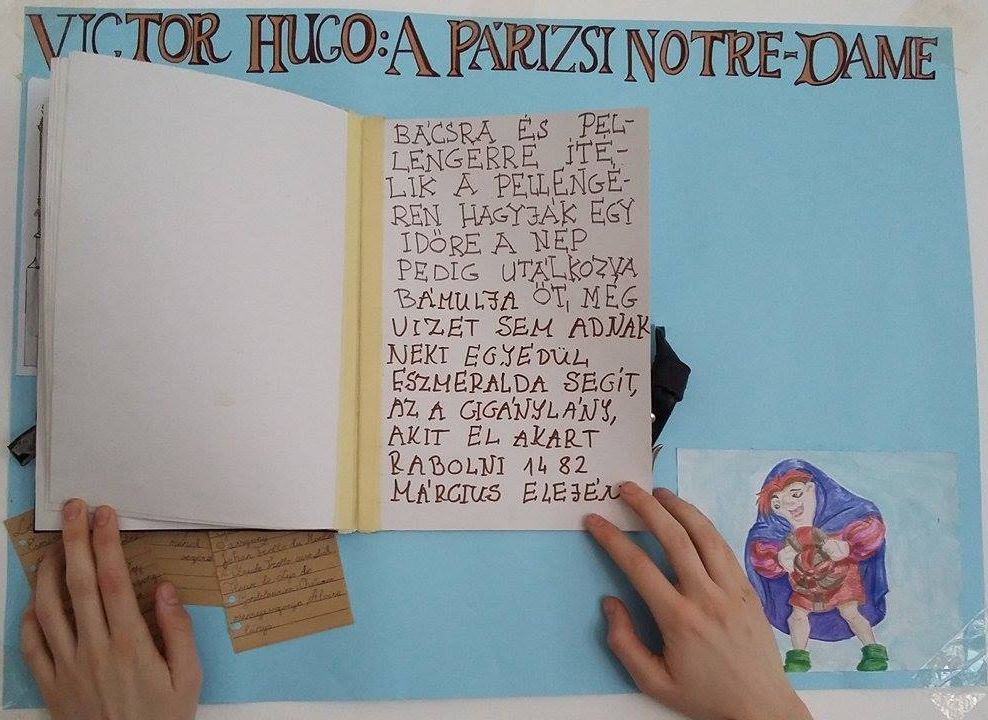 VICTOR HUGO: A PÁRIZSI NOTRE-DAME
BÁCSRA ÉS PEL-
LENGERRE ÍTÉ-
LIK A PELLENGÉ-
REN HAGYJÁK EGY
IDŐRE A NÉP
PEDIG UTÁLKOZVA
BÁMULJA ŐT, MÉG
VIZET SEM ADNAK
NEKI EGYEDÜL
ESZMERALDA SEGÍT,
AZ A CIGÁNYLÁNY,
AKIT EL AKART
RABOLNI 1482
MÁRCIUS ELEJÉN